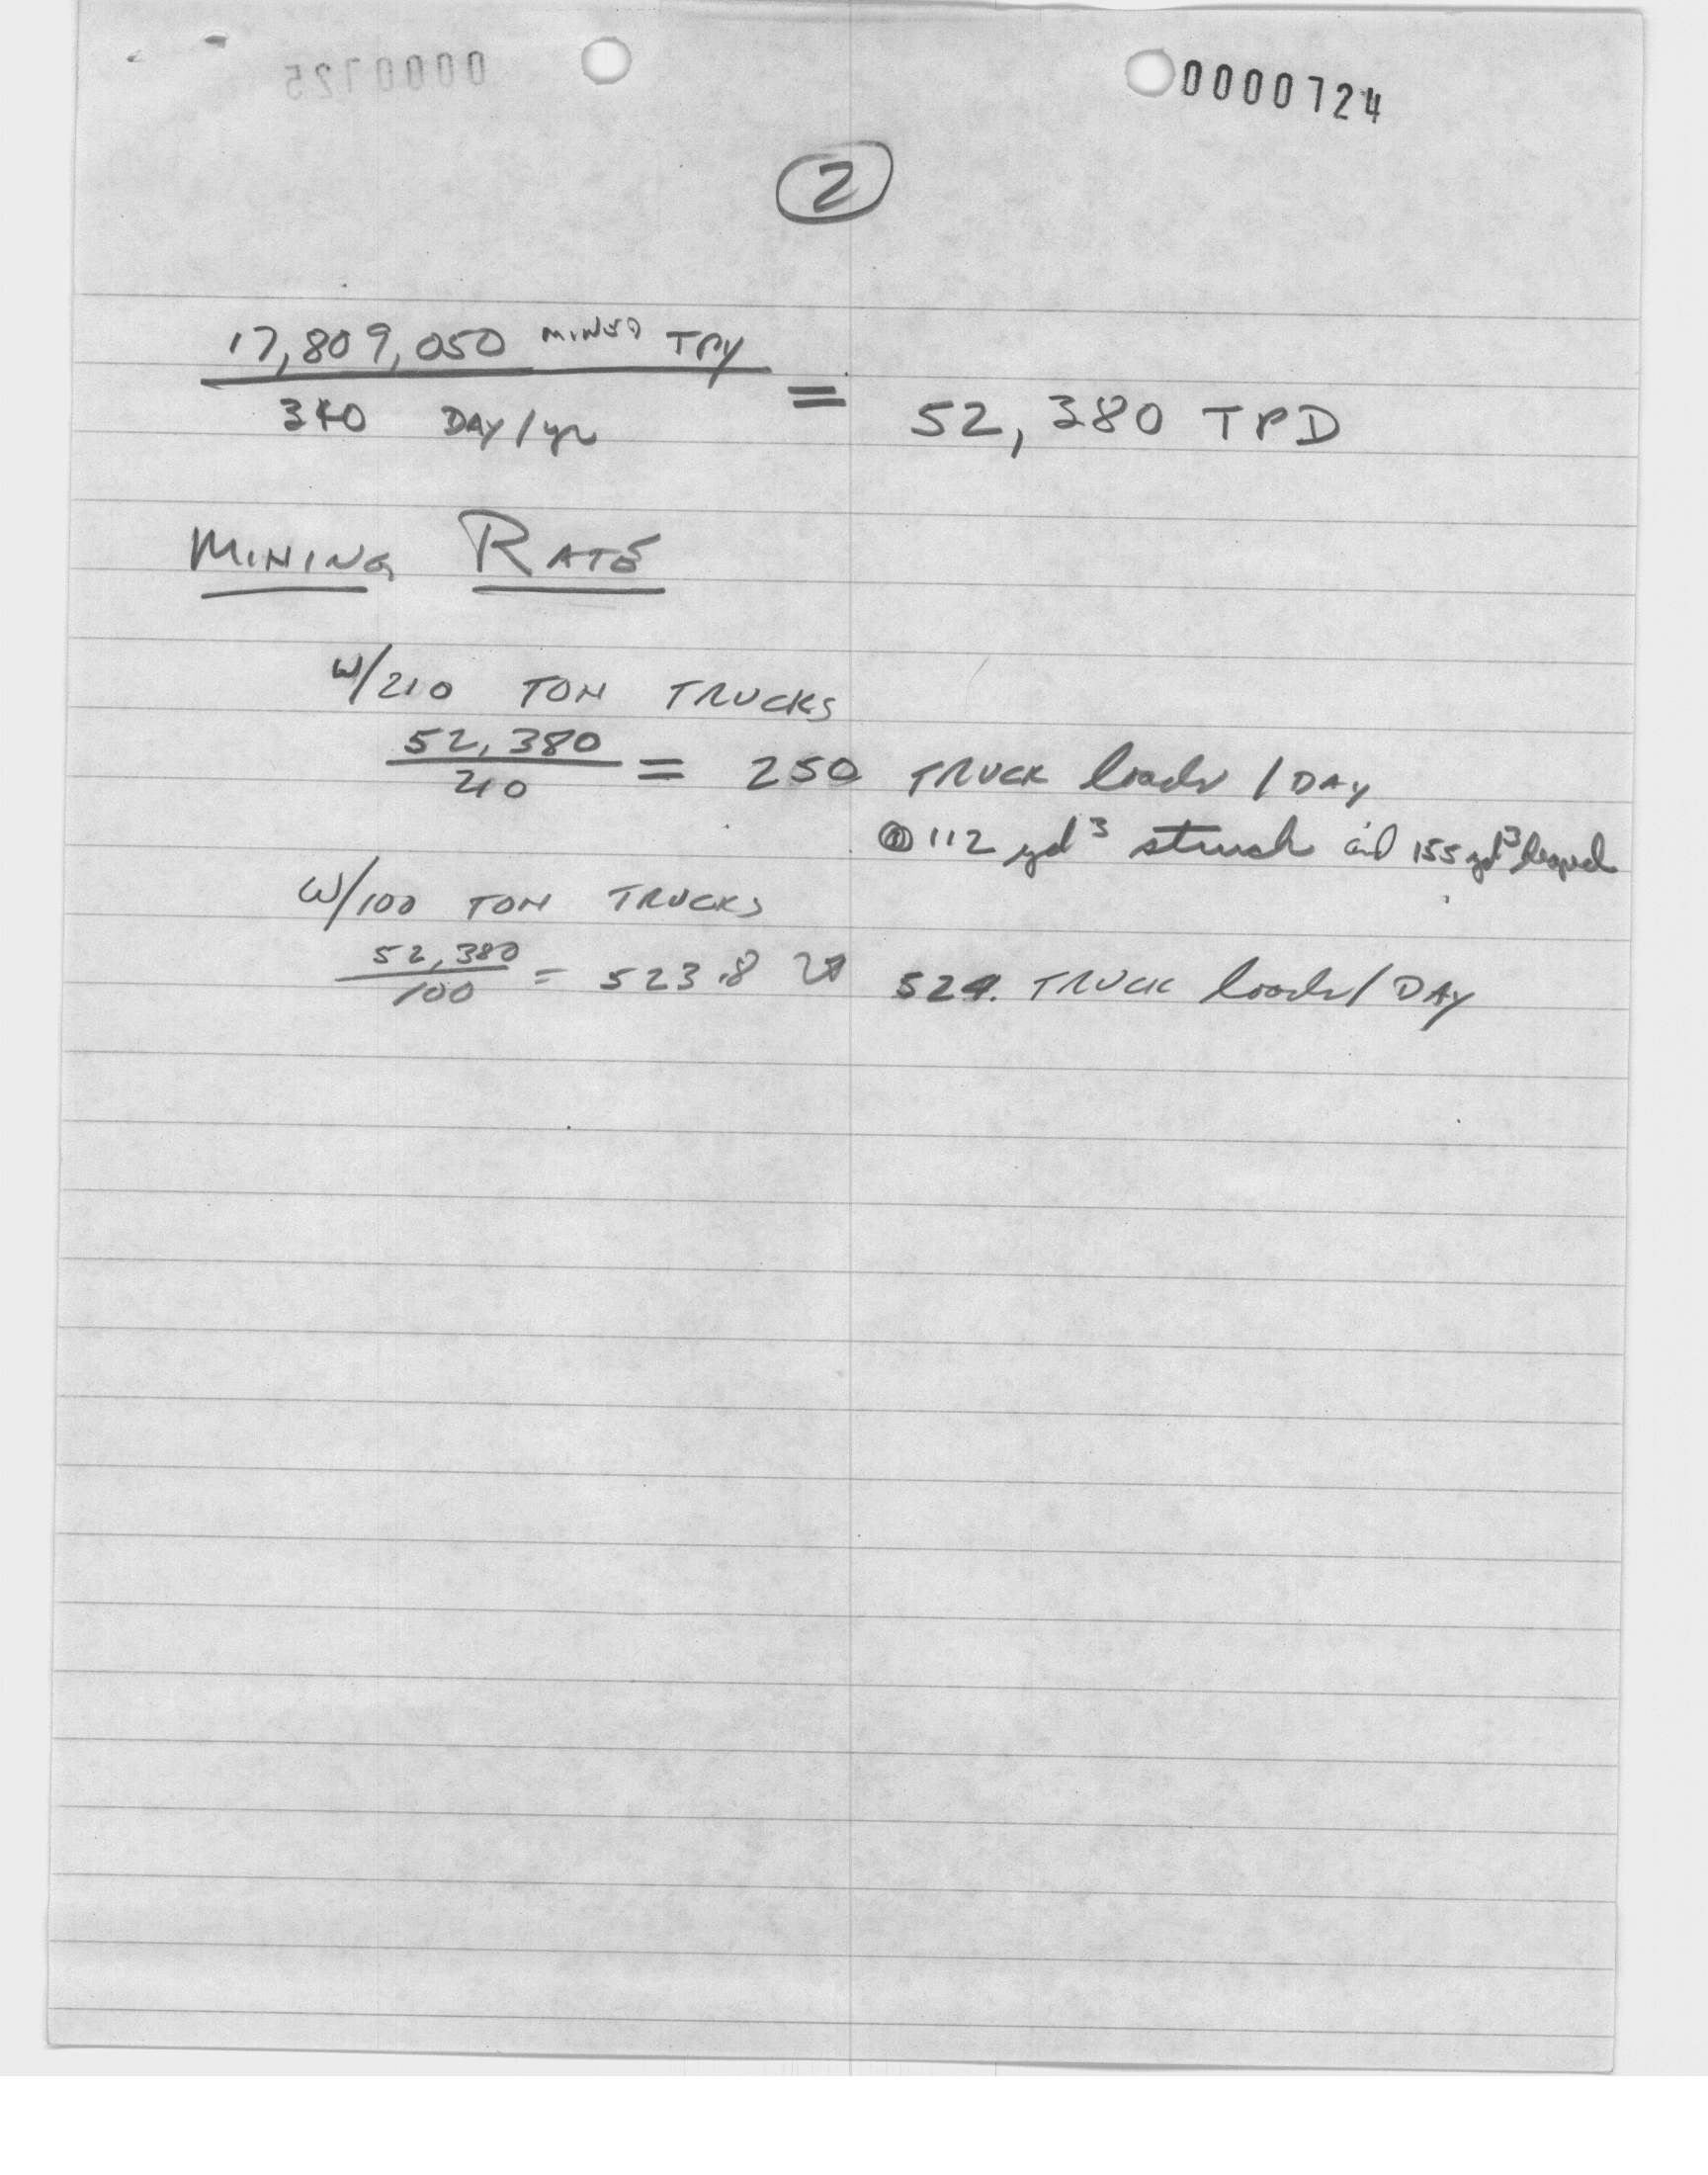 0000725
0000724
2
17,809,050 MINED TPY
340 DAY/yr
= 52,380 TPD
MINING RATE
W/210 TON TRUCKS
52,380
210
= 250 TRUCK loads / DAY
@ 112 yd³ struck and 155 yd³ heaped
W/100 TON TRUCKS
52,380
100
= 523.8 524. TRUCK loads / DAY